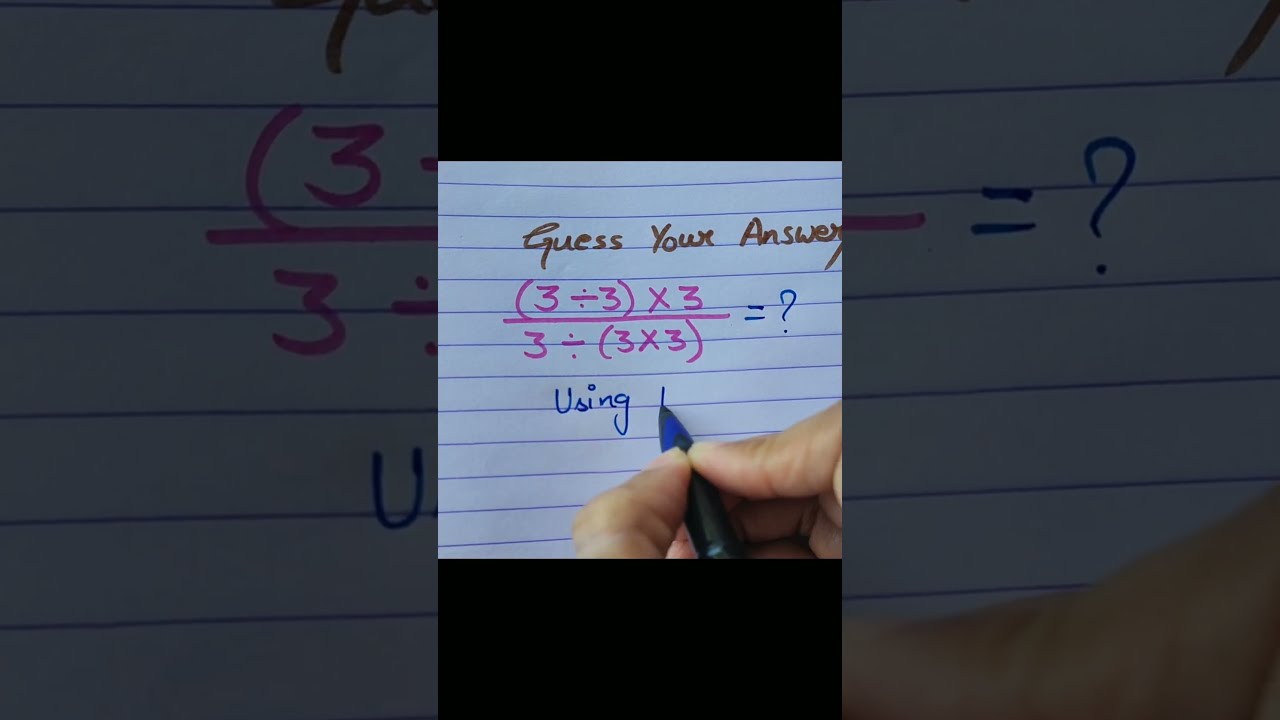 Guess Your Answer
(3 ÷ 3) × 3
3 ÷ (3×3)
= ?
Using